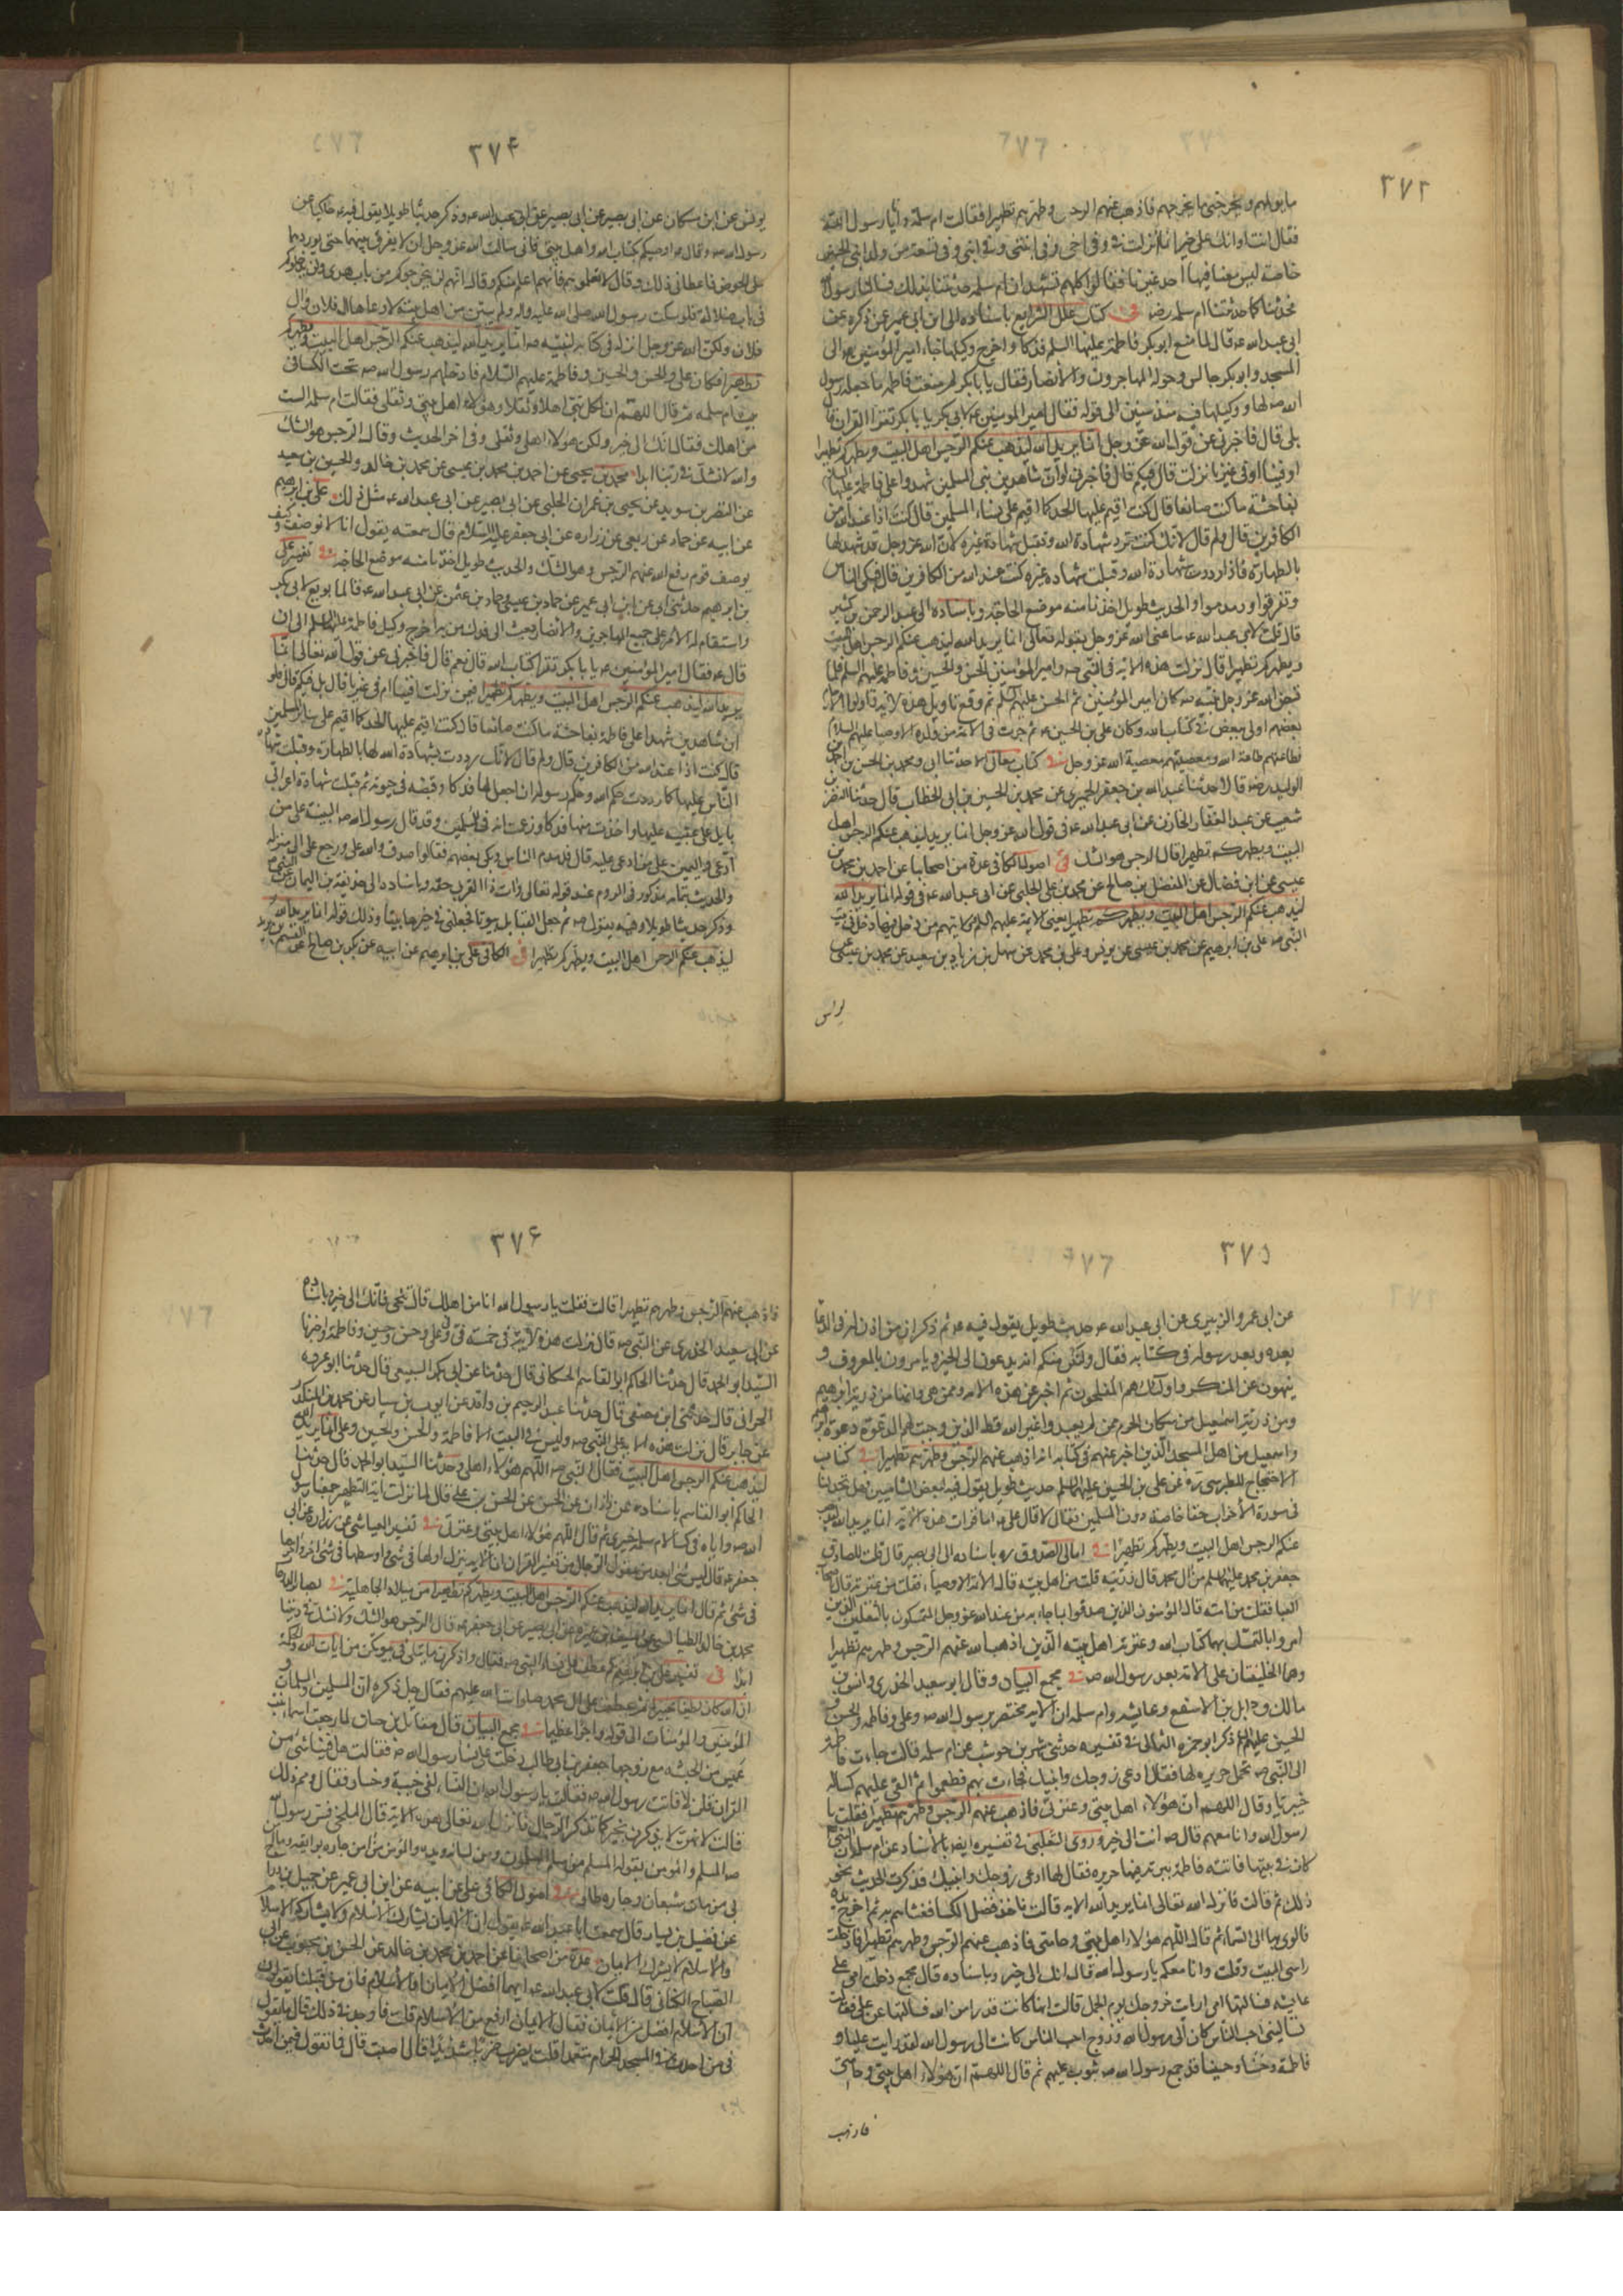 ٣٧٣
ما يولهم ويخرجني ما يخرجهم فاذهب عنهم الرجس وطهرهم تطهيرا فقالت ام سلمة وانا يا رسول الله
فقال انت على خير انما نزلت في وفي اخي وفي ابنتي وفي ابني وفي تسعة من ولد ابني الحسين
خاصة ليس معنا فيها احد غيرنا فقالوا كلهم نشهد ان ام سلمة حدثتنا بذلك فسالنا رسول الله
فحدثنا كما حدثتنا ام سلمة رضي في كتاب علل الشرايع باسناده الى ابن ابي عمير عن ذكره عن
ابي عبد الله ع قال لما منع ابو بكر فاطمة عليها السلم فدكا واخرج وكيلها جاء امير المؤمنين ع الى
المسجد وابو بكر جالس وحوله المهاجرون والانصار فقال يا ابا بكر لم منعت فاطمة ما جعله رسول
الله ص لها ووكيلها فيه منذ سنين الى قوله فقال امير المؤمنين ع لابي بكر يا با بكر تقرأ القران قال
بلى قال فاخبرني عن قول الله عز وجل انما يريد الله ليذهب عنكم الرجس اهل البيت ويطهركم تطهيرا
افينا او في غيرنا نزلت قال فيكم قال فاخبرني لو ان شاهدين من المسلمين شهدوا على فاطمة عليها السلام
بفاحشة ما كنت صانعا قال كنت اقيم عليها الحد كما اقيم على نساء المسلمين قال كنت اذا عند الله من
الكافرين قال ولم قال لانك كنت ترد شهادة الله وتقبل شهادة غيره لان الله عز وجل قد شهد لها
بالطهارة فاذا رددت شهادة الله وقبلت شهادة غيره كنت عند الله من الكافرين قال فبكى الناس
وتفرقوا ودمدموا والحديث طويل اخذنا منه موضع الحاجة وباسناده الى عبد الرحمن بن كثير
قال قلت لابي عبد الله ع ما عنى الله عز وجل بقوله تعالى انما يريد الله ليذهب عنكم الرجس اهل البيت
ويطهركم تطهيرا قال نزلت هذه الاية في النبي ص وامير المؤمنين والحسن والحسين وفاطمة عليهم السلم فلما
قبض الله عز وجل نبيه ص كان امير المؤمنين ثم الحسن ثم الحسين عليهم السلم ثم وقع تاويل هذه الاية واولوا الارحام
بعضهم اولى ببعض في كتاب الله وكان علي بن الحسين ع ثم جرت في الائمة من ولده الاوصيا عليهم السلام
فطاعتهم طاعة الله ومعصيتهم معصية الله عز وجل في كتاب معاني الاخبار حدثنا ابي ومحمد بن الحسن بن احمد بن
الوليد رض قالا حدثنا عبد الله بن جعفر الحميري عن محمد بن الحسين بن ابي الخطاب قال حدثنا النضر بن
شعيب عن عبد الغفار الجازي عن ابي عبد الله ع في قول الله عز وجل انما يريد ليذهب عنكم الرجس اهل
البيت ويطهركم تطهيرا قال الرجس هو الشك في اصول الكافي عدة من اصحابنا عن احمد بن محمد بن
عيسى عن ابن فضال عن المفضل بن صالح عن محمد بن علي الحلبي عن ابي عبد الله ع في قوله انما يريد الله
ليذهب عنكم الرجس اهل البيت ويطهركم تطهيرا يعني الائمة عليهم السلم وولايتهم من دخل فيها دخل في بيت
النبي ص علي بن ابرهيم عن محمد بن عيسى عن يونس وعلي بن محمد عن سهل بن زياد بن سعيد عن محمد بن عيسى
يونس
٣٧۴
يونس عن ابن مسكان عن ابي بصير عن ابي عبد الله ع وذكر حديثا طويلا يقول فيه ع حاكيا عن
رسول الله ص وقال ص اوصيكم بكتاب الله واهل بيتي فاني سالت الله عز وجل ان لا يفرق بينهما حتى يوردهما
على الحوض فاعطاني ذلك وقال لا تعلموهم فانهم اعلم منكم وقال انهم لن يخرجوكم من باب هدى ولن يدخلوكم
في باب ضلالة فلو سكت رسول الله صلى الله عليه واله ولم يبين من اهل بيته لادعاها ال فلان وال
فلان ولكن الله عز وجل انزله في كتابه لنبيه ص انما يريد الله ليذهب عنكم الرجس اهل البيت ويطهركم
تطهيرا فكان علي والحسن والحسين وفاطمة عليهم السلام فادخلهم رسول الله ص تحت الكساء في
بيت ام سلمة ثم قال اللهم ان لكل نبي اهلا وثقلا وهؤلاء اهل بيتي وثقلي فقالت ام سلمة الست
من اهلك فقال انك الى خير ولكن هؤلاء اهلي وثقلي وفي اخر الحديث وقال الرجس هو الشك
والله لا نشك في ربنا ابدا محمد بن يحيى عن احمد بن محمد بن عيسى عن محمد بن خالد والحسين بن سعيد
عن النضر بن سويد عن يحيى بن عمران الحلبي عن ابي بصير عن ابي عبد الله ع مثل ذلك علي بن ابرهيم
عن ابيه عن حماد عن ربعي عن زرارة عن ابي جعفر عليه السلام قال سمعته يقول انا لا نوصف وكيف
يوصف قوم رفع الله عنهم الرجس وهو الشك والحديث طويل اخذنا منه موضع الحاجة في تفسير علي
بن ابرهيم حدثني ابي عن ابن ابي عمير عن حماد بن عيسى وحماد بن عثمن عن ابي عبد الله ع قال لما بويع لابي بكر
واستقام له الامر على جميع المهاجرين والانصار بعث الى فدك من اخرج وكيل فاطمة عليها السلم الى ان
قال ع فقال امير المؤمنين ع يا با بكر تقرأ كتاب الله قال نعم قال فاخبرني عن قول الله تعالى انما
يريد الله ليذهب عنكم الرجس اهل البيت ويطهركم تطهيرا فيمن نزلت افينا ام في غيرنا قال بل فيكم قال فلو
ان شاهدين شهدا على فاطمة بفاحشة ما كنت صانعا قال كنت اقيم عليها الحد كما اقيم على نساء المسلمين
قال كنت اذا عند الله من الكافرين قال ولم قال لانك رددت شهادة الله لها بالطهارة وقبلت شهادة
الناس عليها كما رددت حكم الله وحكم رسوله ان اجعل لها فدكا وقبضته في حيوته ثم قبلت شهادة اعرابي
بايل على عقبيه عليها واخذت منها فدكا وزعمت انه فئ المسلمين وقد قال رسول الله ص البينة على من
ادعى واليمين على من ادعي عليه قال فدمدم الناس وبكى بعضهم فقالوا صدق والله علي ورجع علي الى منزله
والحديث بتمامه مذكور في الروم عند قوله تعالى وآت ذا القربى حقه وباسناده الى حذيفة بن اليمان عن النبي ص
وذكر حديثا طويلا وفيه يقول ص ثم جعل القبايل بيوتا فجعلني في خيرها بيتا وذلك قوله انما يريد الله
ليذهب عنكم الرجس اهل البيت ويطهركم تطهيرا في الكافي علي بن ابرهيم عن ابيه عن بكر بن صالح عن القسم بن بريد
٣٧٥
عن ابي عمرو الزبيري عن ابي عبد الله ع حديث طويل يقول فيه ع ثم ذكر ان من اذن له في الدعا
بعده وبعد رسوله في كتابه فقال ولتكن منكم امة يدعون الى الخير ويامرون بالمعروف و
ينهون عن المنكر واولئك هم المفلحون ثم اخبر عن هذه الامة وممن هي وانها من ذرية ابرهيم
ومن ذرية اسمعيل من سكان الحرم ممن لم يعبدوا غير الله قط الذين وجبت لهم الدعوة دعوة ابرهيم
واسمعيل من اهل المسجد الذين اخبر عنهم في كتابه انه اذهب عنهم الرجس وطهرهم تطهيرا في كتاب
الاحتجاج للطبرسي ره عن علي بن الحسين عليهما السلم حديث طويل يقول فيه لبعض الشاميين فهل تجد لنا
في سورة الاحزاب حقا خاصة دون المسلمين فقال لا قال علي ع اما قرات هذه الاية انما يريد الله ليذهب
عنكم الرجس اهل البيت ويطهركم تطهيرا في امالي الصدوق ره باسناده الى ابي بصير قال قلت للصادق
جعفر بن محمد عليهما السلم من ال محمد قال ذريته قلت من اهل بيته قال الائمة الاوصياء فقلت من عترته قال اصحاب
العبا فقلت من امته قال المؤمنون الذين صدقوا بما جاء به من عند الله عز وجل المتمسكون بالثقلين الذين
امروا بالتمسك بهما كتاب الله وعترته اهل بيته الذين اذهب الله عنهم الرجس وطهرهم تطهيرا
وهما الخليفتان على الامة بعد رسول الله ص في مجمع البيان وقال ابو سعيد الخدري وانس بن
مالك وواثل بن الاسقع وعايشه وام سلمه ان الاية مختصة برسول الله ص وعلي وفاطمه والحسن و
الحسين عليهم السلم ذكر ابو حمزه الثمالي في تفسيره حدثني شهر بن حوشب عن ام سلمه قالت جاءت فاطمة
الى النبي ص تحمل حريرة لها فقال ادعي زوجك وابنيك فجاءت بهم فطعموا ثم القى عليهم كساء له
خيبريا وقال اللهم ان هؤلاء اهل بيتي وعترتي فاذهب عنهم الرجس وطهرهم تطهيرا فقلت يا
رسول الله وانا معهم قال ص انت الى خير وروى الثعلبي في تفسيره ايضا بالاسناد عن ام سلمه ان النبي ص
كان في بيتها فاتته فاطمة ببرمة فيها حريره فقال لها ادعي زوجك وابنيك فذكرت الحديث نحو
ذلك ثم قالت فانزل الله تعالى انما يريد الله الاية قالت فاخذ فضل الكسا فغشاهم به ثم اخرج يده
فالوى بها الى السماء ثم قال اللهم هؤلاء اهل بيتي وحامتي فاذهب عنهم الرجس وطهرهم تطهيرا فادخلت
راسي البيت وقلت وانا معكم يا رسول الله قال انك الى خير وباسناده قال مجمع دخلت مع امي على
عايشة فسالتها امي ارايت خروجك يوم الجمل قالت انها كانت قدرا من الله فسالتها عن علي فقالت
تساليني احب الناس كان الى رسول الله وزوج احب الناس كانت الى رسول الله لقد رايت عليا و
فاطمة وحسنا وحسينا قد جمع رسول الله ص بثوب عليهم ثم قال اللهم ان هؤلاء اهل بيتي وحامتي
فاذهب
٣٧۶
فاذهب عنهم الرجس وطهرهم تطهيرا قالت فقلت يا رسول الله انا من اهلك قال تنحي فانك الى خير وباسناده
عن ابي سعيد الخدري عن النبي ص قال نزلت هذه الاية في خمسة في وفي علي وحسن وحسين وفاطمة واخبرنا
السيد ابو الحمد قال حدثنا الحاكم ابو القاسم الحسكاني قال حدثنا عن ابي بكر السبيعي قال حدثنا ابو عروبه
الحراني قال حدثني ابن مصفى قال حدثنا عبد الرحيم بن واقد عن ايوب بن سيار عن محمد بن المنكدر
عن جابر قال نزلت هذه الاية على النبي ص وليس في البيت الا فاطمة والحسن والحسين وعلي انما يريد الله
ليذهب عنكم الرجس اهل البيت فقال النبي ص اللهم هؤلاء اهلي وحدثنا السيد ابو الحمد قال حدثنا
الحاكم ابو القاسم باسناده عن زاذان عن الحسن بن علي قال لما نزلت اية التطهير جمعنا رسول
الله ص واياه في كساء لام سلمة خيبري ثم قال اللهم هؤلاء اهل بيتي وعترتي في تفسير العياشي عن زرارة عن ابي
جعفر ع قال ليس شئ ابعد من عقول الرجال من تفسير القران ان الاية ينزل اولها في شئ واوسطها في شئ واخرها
في شئ ثم قال انما يريد الله ليذهب عنكم الرجس اهل البيت ويطهركم تطهيرا من ميلاد الجاهلية في بصائر الدرجات
محمد بن خالد الطيالسي عن سيف بن عميره عن ابي بصير عن ابي جعفر ع قال الرجس هو الشك ولا نشك في ديننا
ابدا في تفسير علي بن ابرهيم ثم عطف على نساء النبي ص فقال واذكرن ما يتلى في بيوتكن من ايات الله والحكمة
ان الله كان لطيفا خبيرا ثم عطف على ال محمد صلوات الله عليهم فقال جل ذكره ان المسلمين والمسلمات و
المؤمنين والمؤمنات الى قوله واجرا عظيما في مجمع البيان قال مقاتل بن حيان لما رجعت اسماء بنت
عميس من الحبشه مع زوجها جعفر بن ابي طالب دخلت على نساء رسول الله ص فقالت هل فينا شئ من
القران قلن لا فاتت رسول الله ص فقالت يا رسول الله ان النساء لفي خيبة وخسار فقال ومم ذلك
قالت لانهن لا يذكرن بخير كما يذكر الرجال فانزل الله تعالى هذه الاية قال البلخي فسر رسول الله
ص المسلم والمؤمن بقوله المسلم من سلم المسلمون من لسانه ويده والمؤمن من امن جاره بوايقه وما امن
بي من بات شبعان وجاره طاو في اصول الكافي علي عن ابيه عن ابن ابي عمير عن جميل بن دراج
عن فضيل بن يسار قال سمعت ابا عبد الله ع يقول ان الايمان يشارك الاسلام ولا يشاركه الاسلام
والاسلام لا يشرك الايمان عدة من اصحابنا عن احمد بن محمد بن خالد عن الحسن بن محبوب عن ابي
الصباح الكناني قال قلت لابي عبد الله ع ايهما افضل الايمان او الاسلام فان من قبلنا يقولون
ان الاسلام افضل من الايمان فقال الايمان ارفع من الاسلام قلت فاوجدني ذلك قال ما تقول
في من احدث في المسجد الحرام متعمدا قلت يضرب ضربا شديدا قال اصبت قال فما تقول فيمن احدث